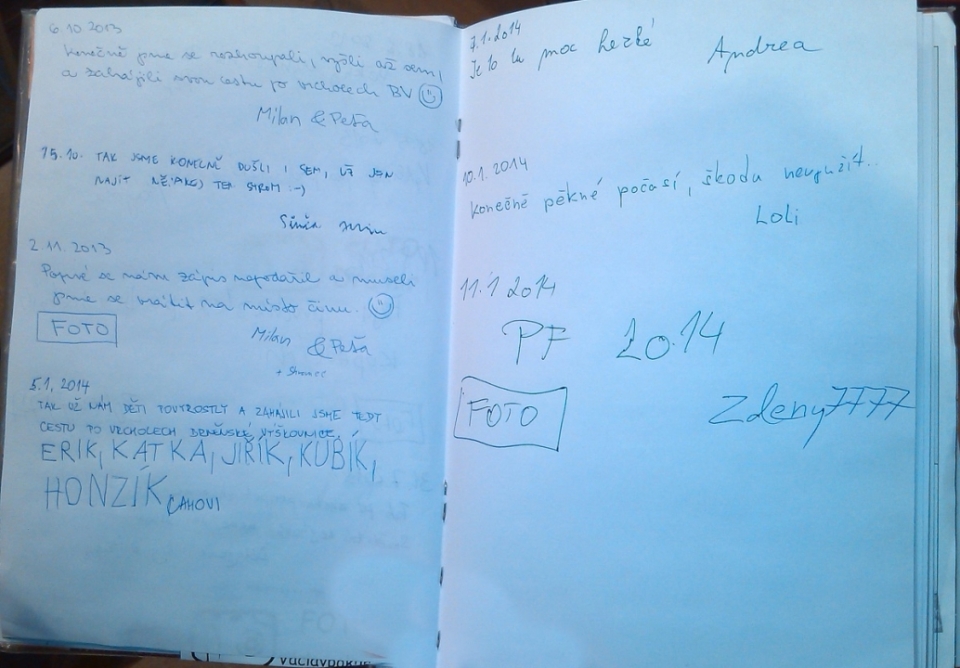 6.10 2013
Konečně jsme se rozhoupali, vyšli až sem,
a zahájili svou cestu po vrcholech BV
Milan & Peťa
15.10. TAK JSME KONEČNĚ DOŠLI I SEM, UŽ JEN
NAJÍT NĚJAKEJ TEN STROM :-)
2.11.2013
Poprvé se nám zápis nepodařil a museli
jsme se vrátit na místo činu.
FOTO
Milan & Peťa
5.1, 2014
TAK UŽ NÁM DĚTI POVYROSTLY A ZAHÁJILI JSME TEDY
CESTU PO VRCHOLECH BRNĚNSKÉ VÝŠKOVNICE,
ERIK, KATKA, JIŘÍK, KUBÍK,
HONZÍK CAHOVI
7.1.2014
Je to tu moc hezké
Andrea
10.1.2014
Konečně pěkné počasí, škoda nevyužít...
Loli
11.1 2014
PF 2014
FOTO
Zdeny7777